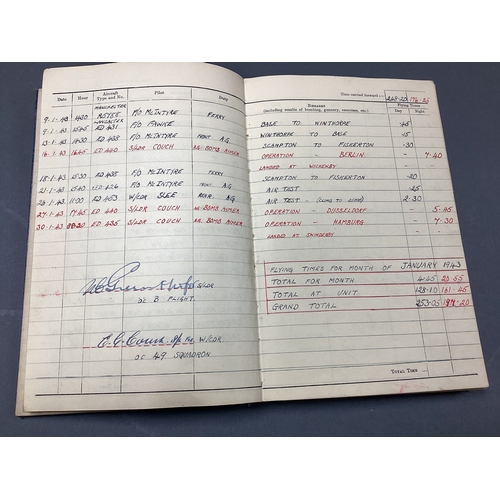 Time carried forward:— 248·20 170·25
Date Hour Aircraft Type and No. Pilot Duty REMARKS (including results of bombing, gunnery, exercises, etc.) Flying Times Day Night
MANCHESTER
9·1·43 1430 F/O McINTYRE FERRY BASE TO WINTHORPE ·45
LANCASTER
9·1·43 1545 ED 431 F/O FAWKE WINTHORPE TO BASE ·15
13·1·43 ED 438 F/O McINTYRE A/G SCAMPTON TO FISKERTON ·30
16·1·43 1645 ED 440 S/LDR COUCH AIR BOMB AIMER OPERATION - BERLIN 7·40
LANDED AT WICKENBY
18·1·43 1530 ED 438 F/O McINTYRE FERRY SCAMPTON TO FISKERTON ·20
21·1·43 1540 ED 426 F/O McINTYRE A/G AIR TEST ·25
26·1·43 11:00 ED 453 W/CDR SLEE A/G AIR TEST - 2·30
27·1·43 1745 ED 440 S/LDR COUCH AIR BOMB AIMER OPERATION - DUSSELDORF 5·45
30·1·43 ED 435 S/LDR COUCH AIR BOMB AIMER OPERATION - HAMBURG 7·30
LANDED AT
FLYING TIMES FOR MONTH OF JANUARY 1943
TOTAL FOR MONTH 4·45 20·55
TOTAL AT UNIT 128·10 161·45
GRAND TOTAL 253·05 191·20
S/LDR
OC B FLIGHT
W/CDR
OC 49 SQUADRON
TOTAL TIME